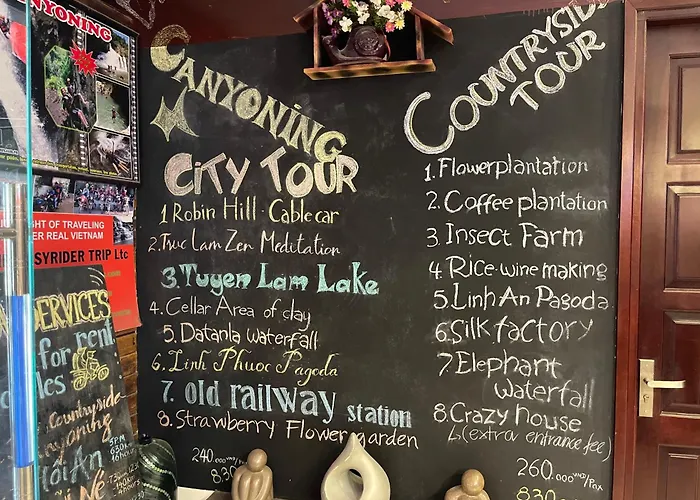 CANYONING
HT OF TRAVELING
ER REAL VIETNAM
SYRIDER TRIP Ltc
SERVICES
for rent
Countryside
6PM
CANYONING
CITY TOUR
1 Robin Hill. Cable car
2. Truc Lam Zen Meditation
3. Tuyen Lam Lake
4. Cellar Area of clay
5. Datanla waterfall
6. Linh Phuoc Pagoda
7. old railway station
8. Strawberry Flower garden
240.000 VND/Pax
830
COUNTRYSIDE
TOUR
1. Flower plantation
2. Coffee plantation
3. Insect Farm
4. Rice-wine making
5. Linh An Pagoda
6. Silk factory
7. Elephant
waterfall
8. Crazy house
(extra entrance fee)
260.000 VND/Pax
830